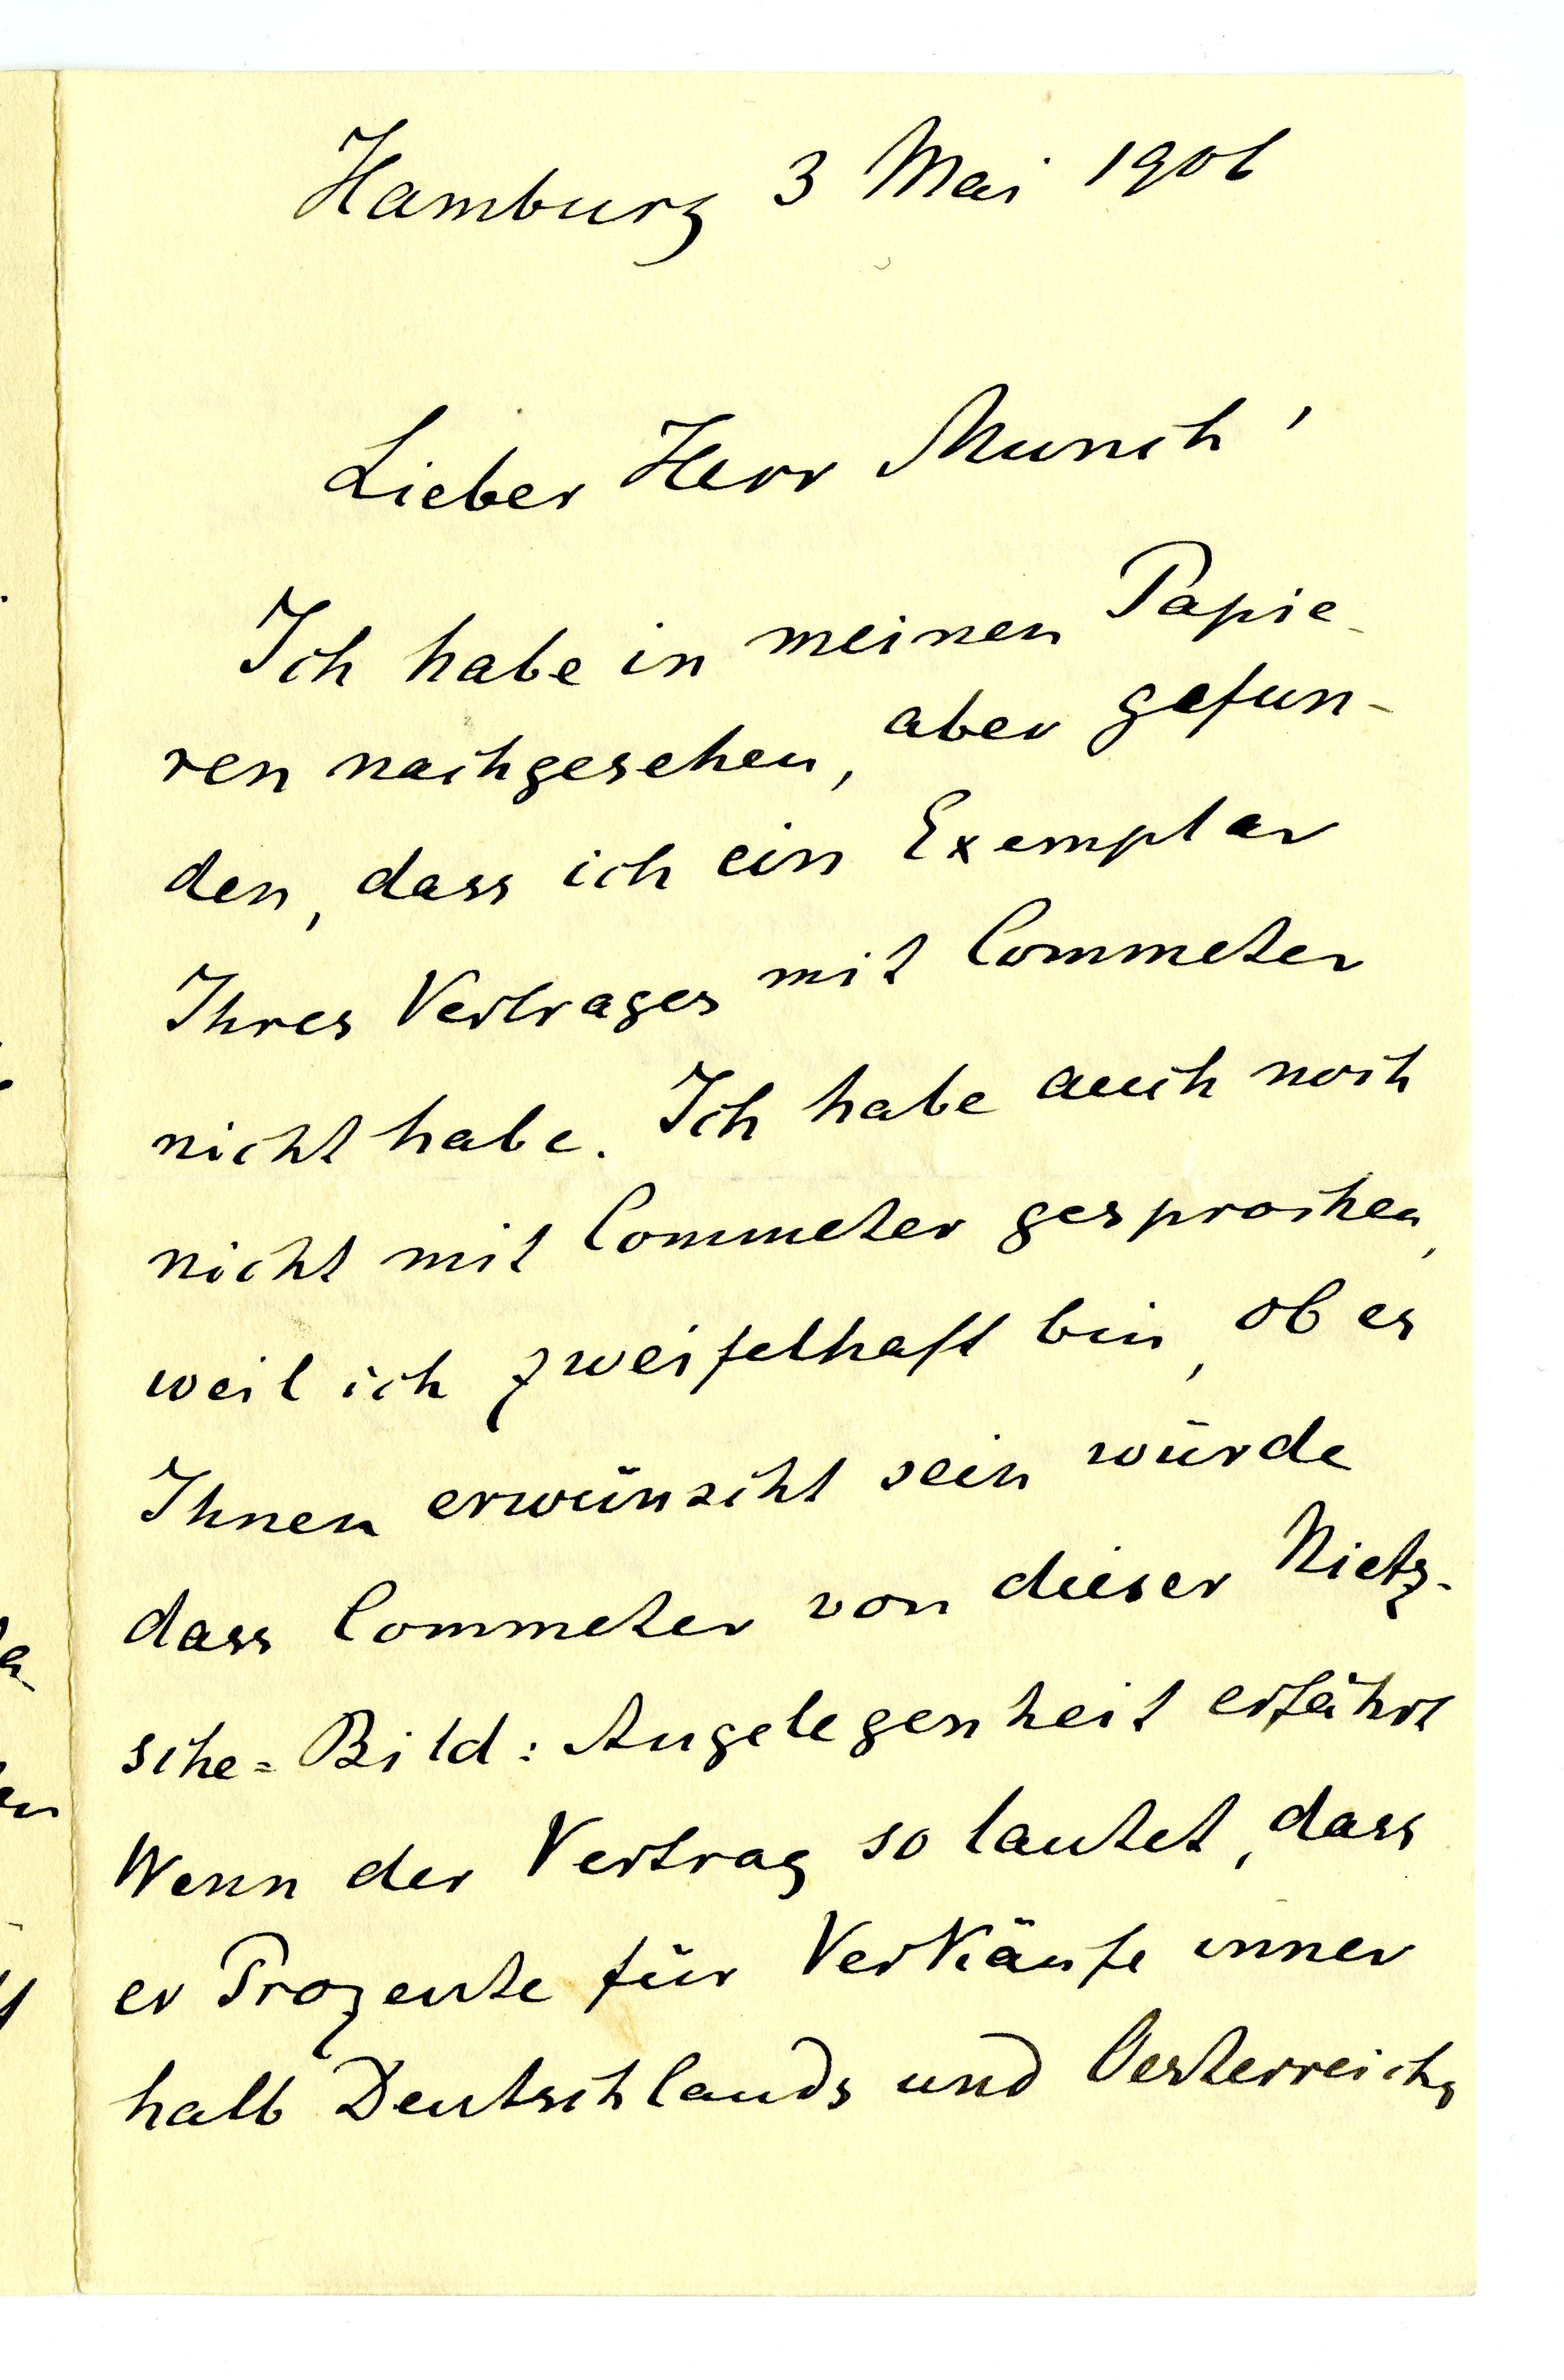 Hamburg 3 Mai 1906
Lieber Herr Munch!
Ich habe in meinen Papie-
ren nachgesehen, aber gefun-
den, dass ich ein Exemplar
Ihres Vertrages mit Commeter
nicht habe. Ich habe auch noch
nicht mit Commeter gesprochen,
weil ich zweifelhaft bin, ob es
Ihnen erwünscht sein würde
dass Commeter von dieser Nietz-
sche=Bild: Angelegenheit erfährt
Wenn der Vertrag so lautet, dass
er Prozente für Verkäufe inner
halb Deutschlands und Oesterreichs